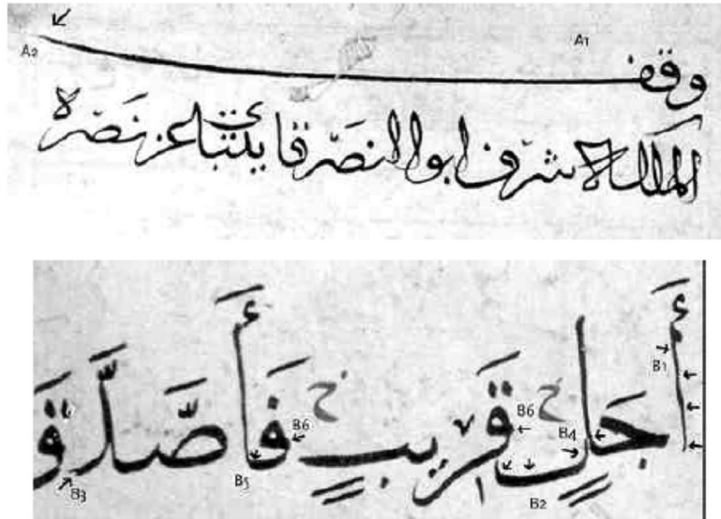 A1 A2
وقف
الملك الاشرف ابوا النصّر قايتباى عز نصّره
أَجَلٍ قَرِيبٍ فَأَصَّدَّقَ
ح ح
B1
B6 B6 B4
B5 B3 B2